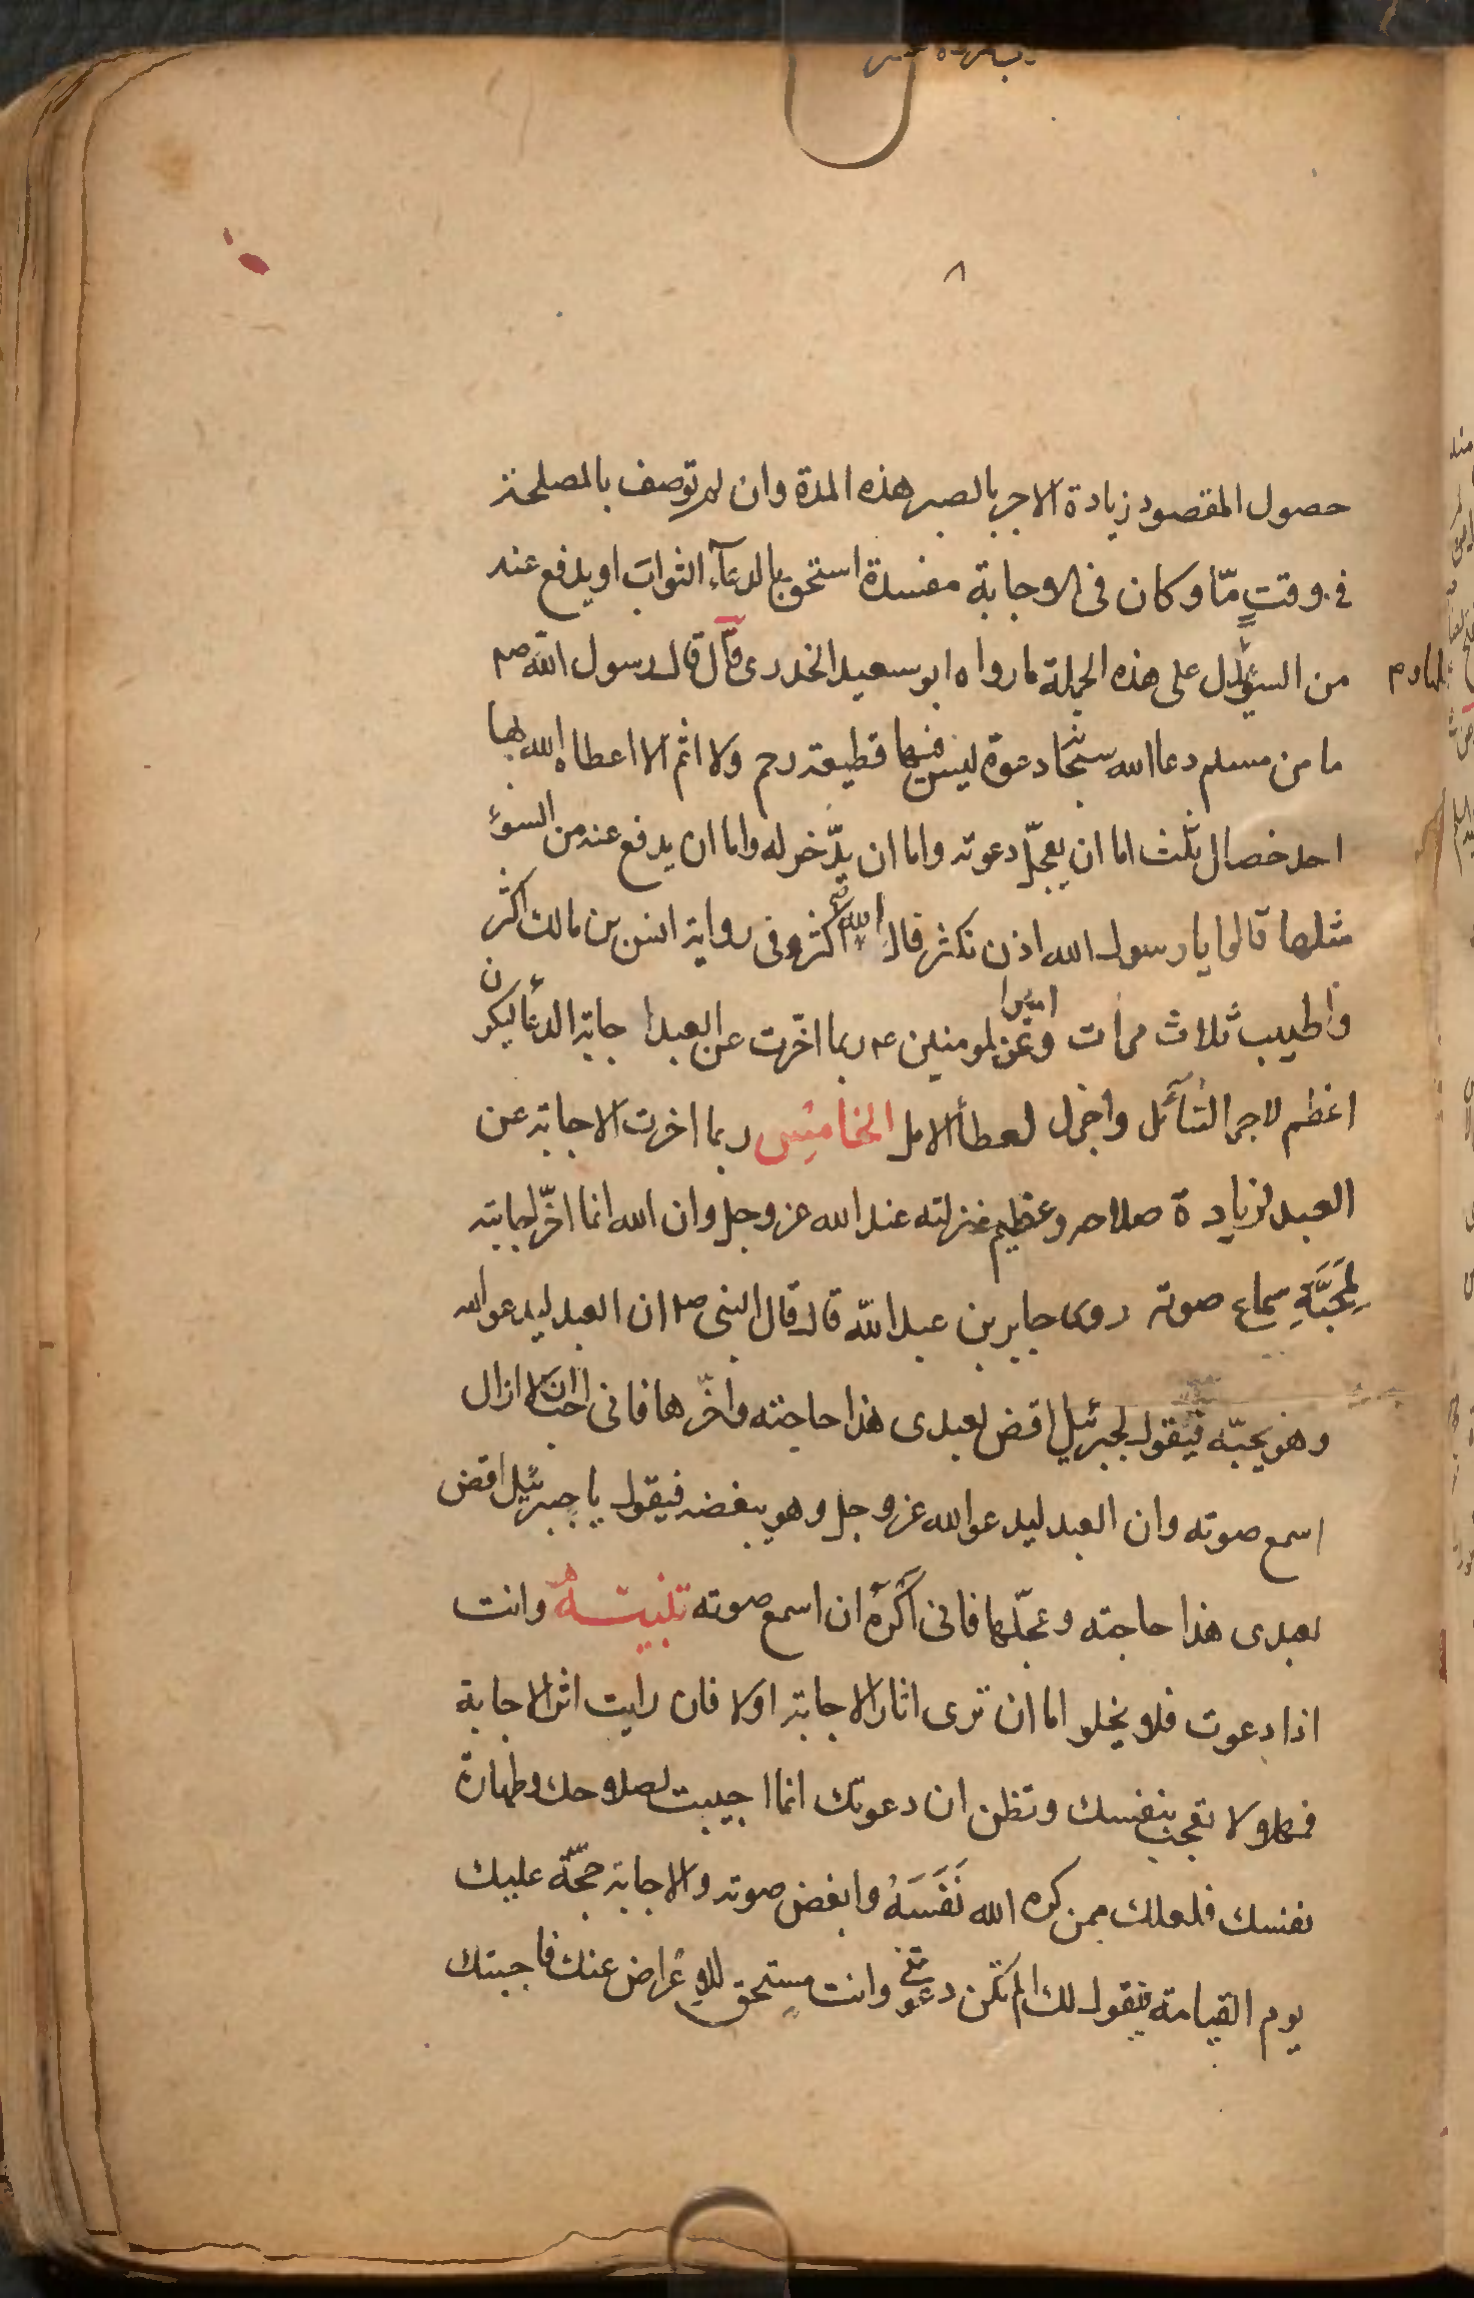 ٨
حصول المقصود زيادة الاجر بالصبر هذه المدة وان لم توصف بالمصلحة
فى وقتٍ مّا وكان فى الاجابة مفسدة استحق بالدعآء الثوابَ او يدفع عنه
من السوء يدل على هذه الجملة ما رواه ابو سعيد الخدرى قآل قال رسول الله صم
ما من مسلم دعا الله سبحانه دعوة ليس فيها قطيعة رحم ولا اثم الا اعطاه الله بها
احد خصال ثلث اما ان يعجّل دعوته واما ان يدّخر له واما ان يدفع عنه من السوء
مثلها قالوا يا رسول الله اذن نكثر قال الله تع اكثر وفى رواية انس بن مالك اكثر
واطيب ثلاث مرات وعن امير المومنين ع م ربما اخّرت عن العبد اجابة الدعأ ليكون
اعظم لاجر السآئل واجزل لعطأ الامل الخامِس ربما اخرت الاجابة عن
العبد لزيادة صلاحه وعظيم منزلته عند الله عز وجل وان الله انما اخّر اجابته
لِمَحَبَّةِ سماع صوته روى جابر بن عبد الله قال قال النبى صم ان العبد ليدعو الله
وهو يحبّه فيقول لجبرئيل اقض لعبدى هذا حاجته واخّرها فانى احب ان لا ازال
اسمع صوته وان العبد ليدعو الله عز وجل وهو يبغضه فيقول يا جبرئيل اقض
لعبدى هذا حاجته وعجّلها فانى اَكْرَهُ ان اسمع صوته تنبيـهٌ وانت
اذا دعوت فلا يخلو اما ان ترى اثار الاجابة اولا فان رايت اثر الاجابة
فمهلا ولا تعجب بنفسك وتظن ان دعوتك انما اجيبت لصلاحك وطهارة
نفسك فلعلك ممن كره الله نَفَسَهُ وابغض صوته والاجابة حجّة عليك
يوم القيامة يقول لك الم تكن دعوتنى وانت مستحق للاعراض عنك فاجبتك